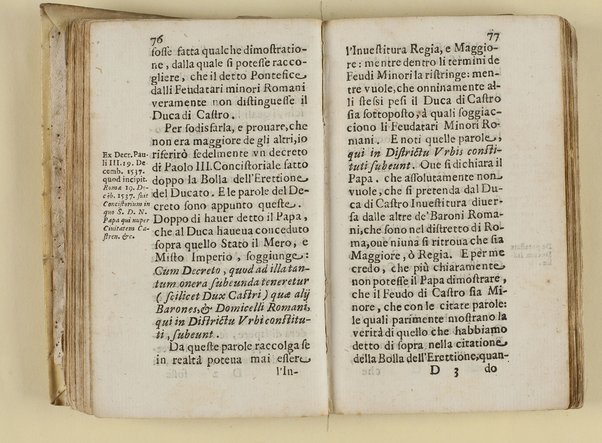 76
fosse fatta qualche dimostratio-
ne, dalla quale si potesse racco-
gliere, che il detto Pontefice
dalli Feudatari minori Romani
veramente non distinguesse il
Duca di Castro.
Per sodisfarla, e prouare, che
non era maggiore de gli altri, io
riferirò fedelmente vn decreto
di Paolo III. Concistoriale fatto
doppo la Bolla dell'Erettione
del Ducato. E le parole del De-
creto sono appunto queste.
Doppo di hauer detto il Papa,
che al Duca haueua conceduto
sopra quello Stato il Mero, e
Misto Imperio, soggiunge:
Cum Decreto, quod ad illa tan-
tum onera subeunda teneretur
(scilicet Dux Castri) quæ alij
Barones, & Domicelli Romani,
qui in Districtu Vrbi constitu-
ti, subeunt.
Da queste parole raccolga se
in realtà poteua mai essere
l'In-
Ex Decr. Pau-
li III. 19. De
cemb. 1537.
quod incipit.
Romæ 19. De-
cēb. 1537. fuit
Concistorium in
quo S. D. N.
Papa qui nuper
Ciuitatem Ca-
stren. &c.
77
l'Inuestitura Regia, e Maggio-
re: mentre dentro li termini de
Feudi Minori la ristringe: men-
tre vuole, che onninamente al-
li stessi pesi il Duca di Castro
sia sottoposto, à quali soggiac-
ciono li Feudatari Minori Ro-
mani. E noti quelle parole,
qui in Districtu Vrbis consti-
tuti subeunt. Oue si dichiara il
Papa. che assolutamente non
vuole, che si pretenda dal Du-
ca di Castro Inuestitura diuer-
sa dalle altre de'Baroni Roma-
ni, che sono nel distretto di Ro-
ma, oue niuna si ritroua che sia
Maggiore, ò Regia. E per me
credo, che più chiaramente
non potesse il Papa dimostrare,
che il Feudo di Castro sia Mi-
nore, che con le citate parole:
le quali parimente mostrano la
verità di quello che habbiamo
detto di sopra nella citatione
della Bolla dell'Erettione, quan-
D 3 do